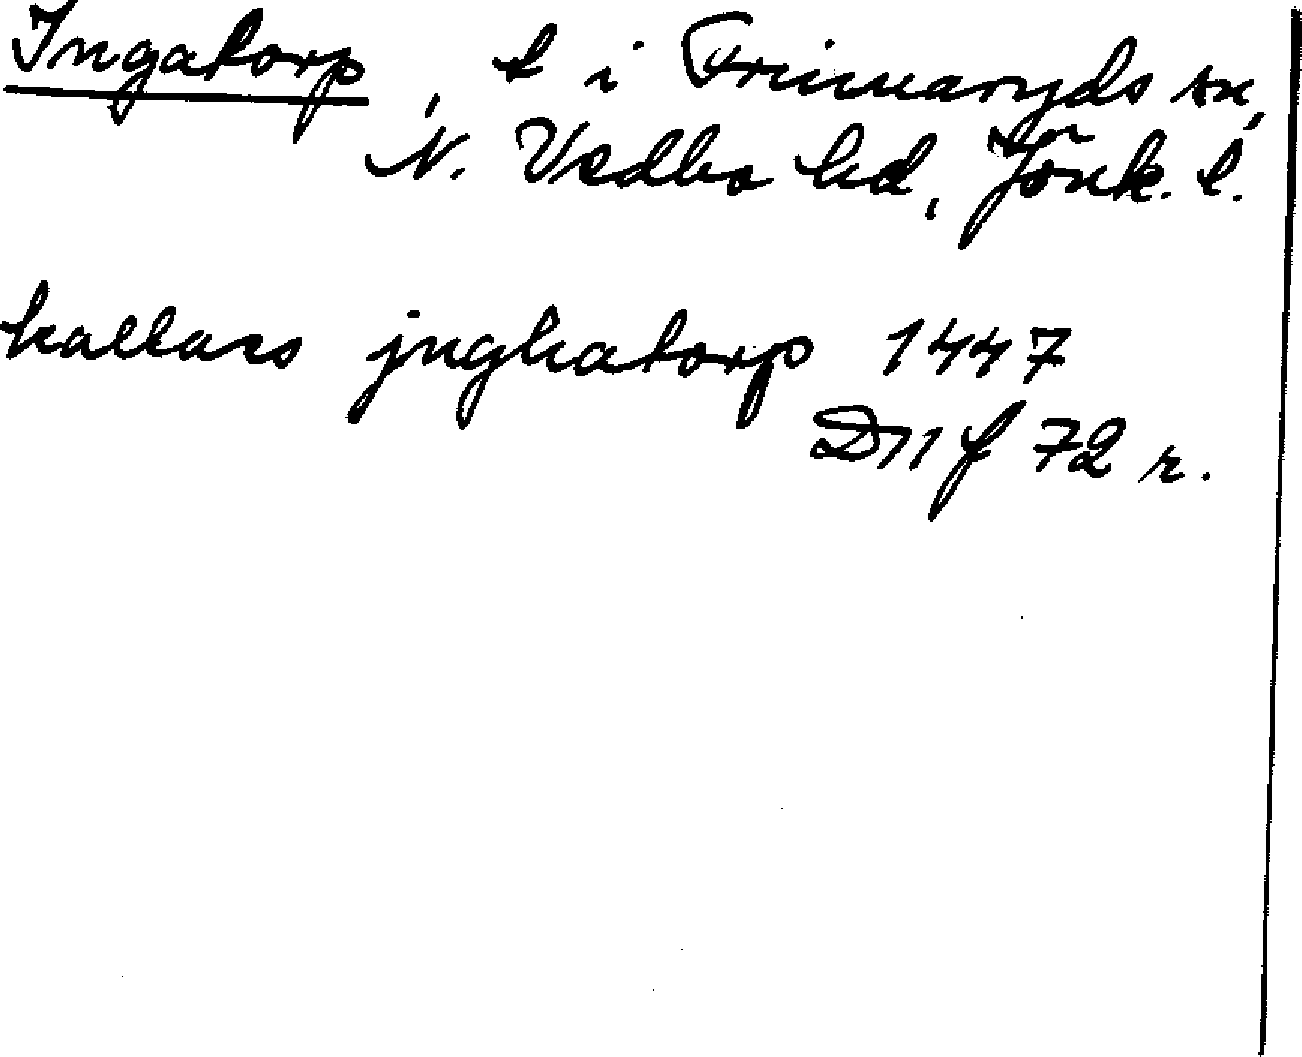 Ingatorp, t i Frinnaryds sn,
N. Vedbo hd, Jönk. l.
kallass jnghatorp 1447
D11 f 72 r.